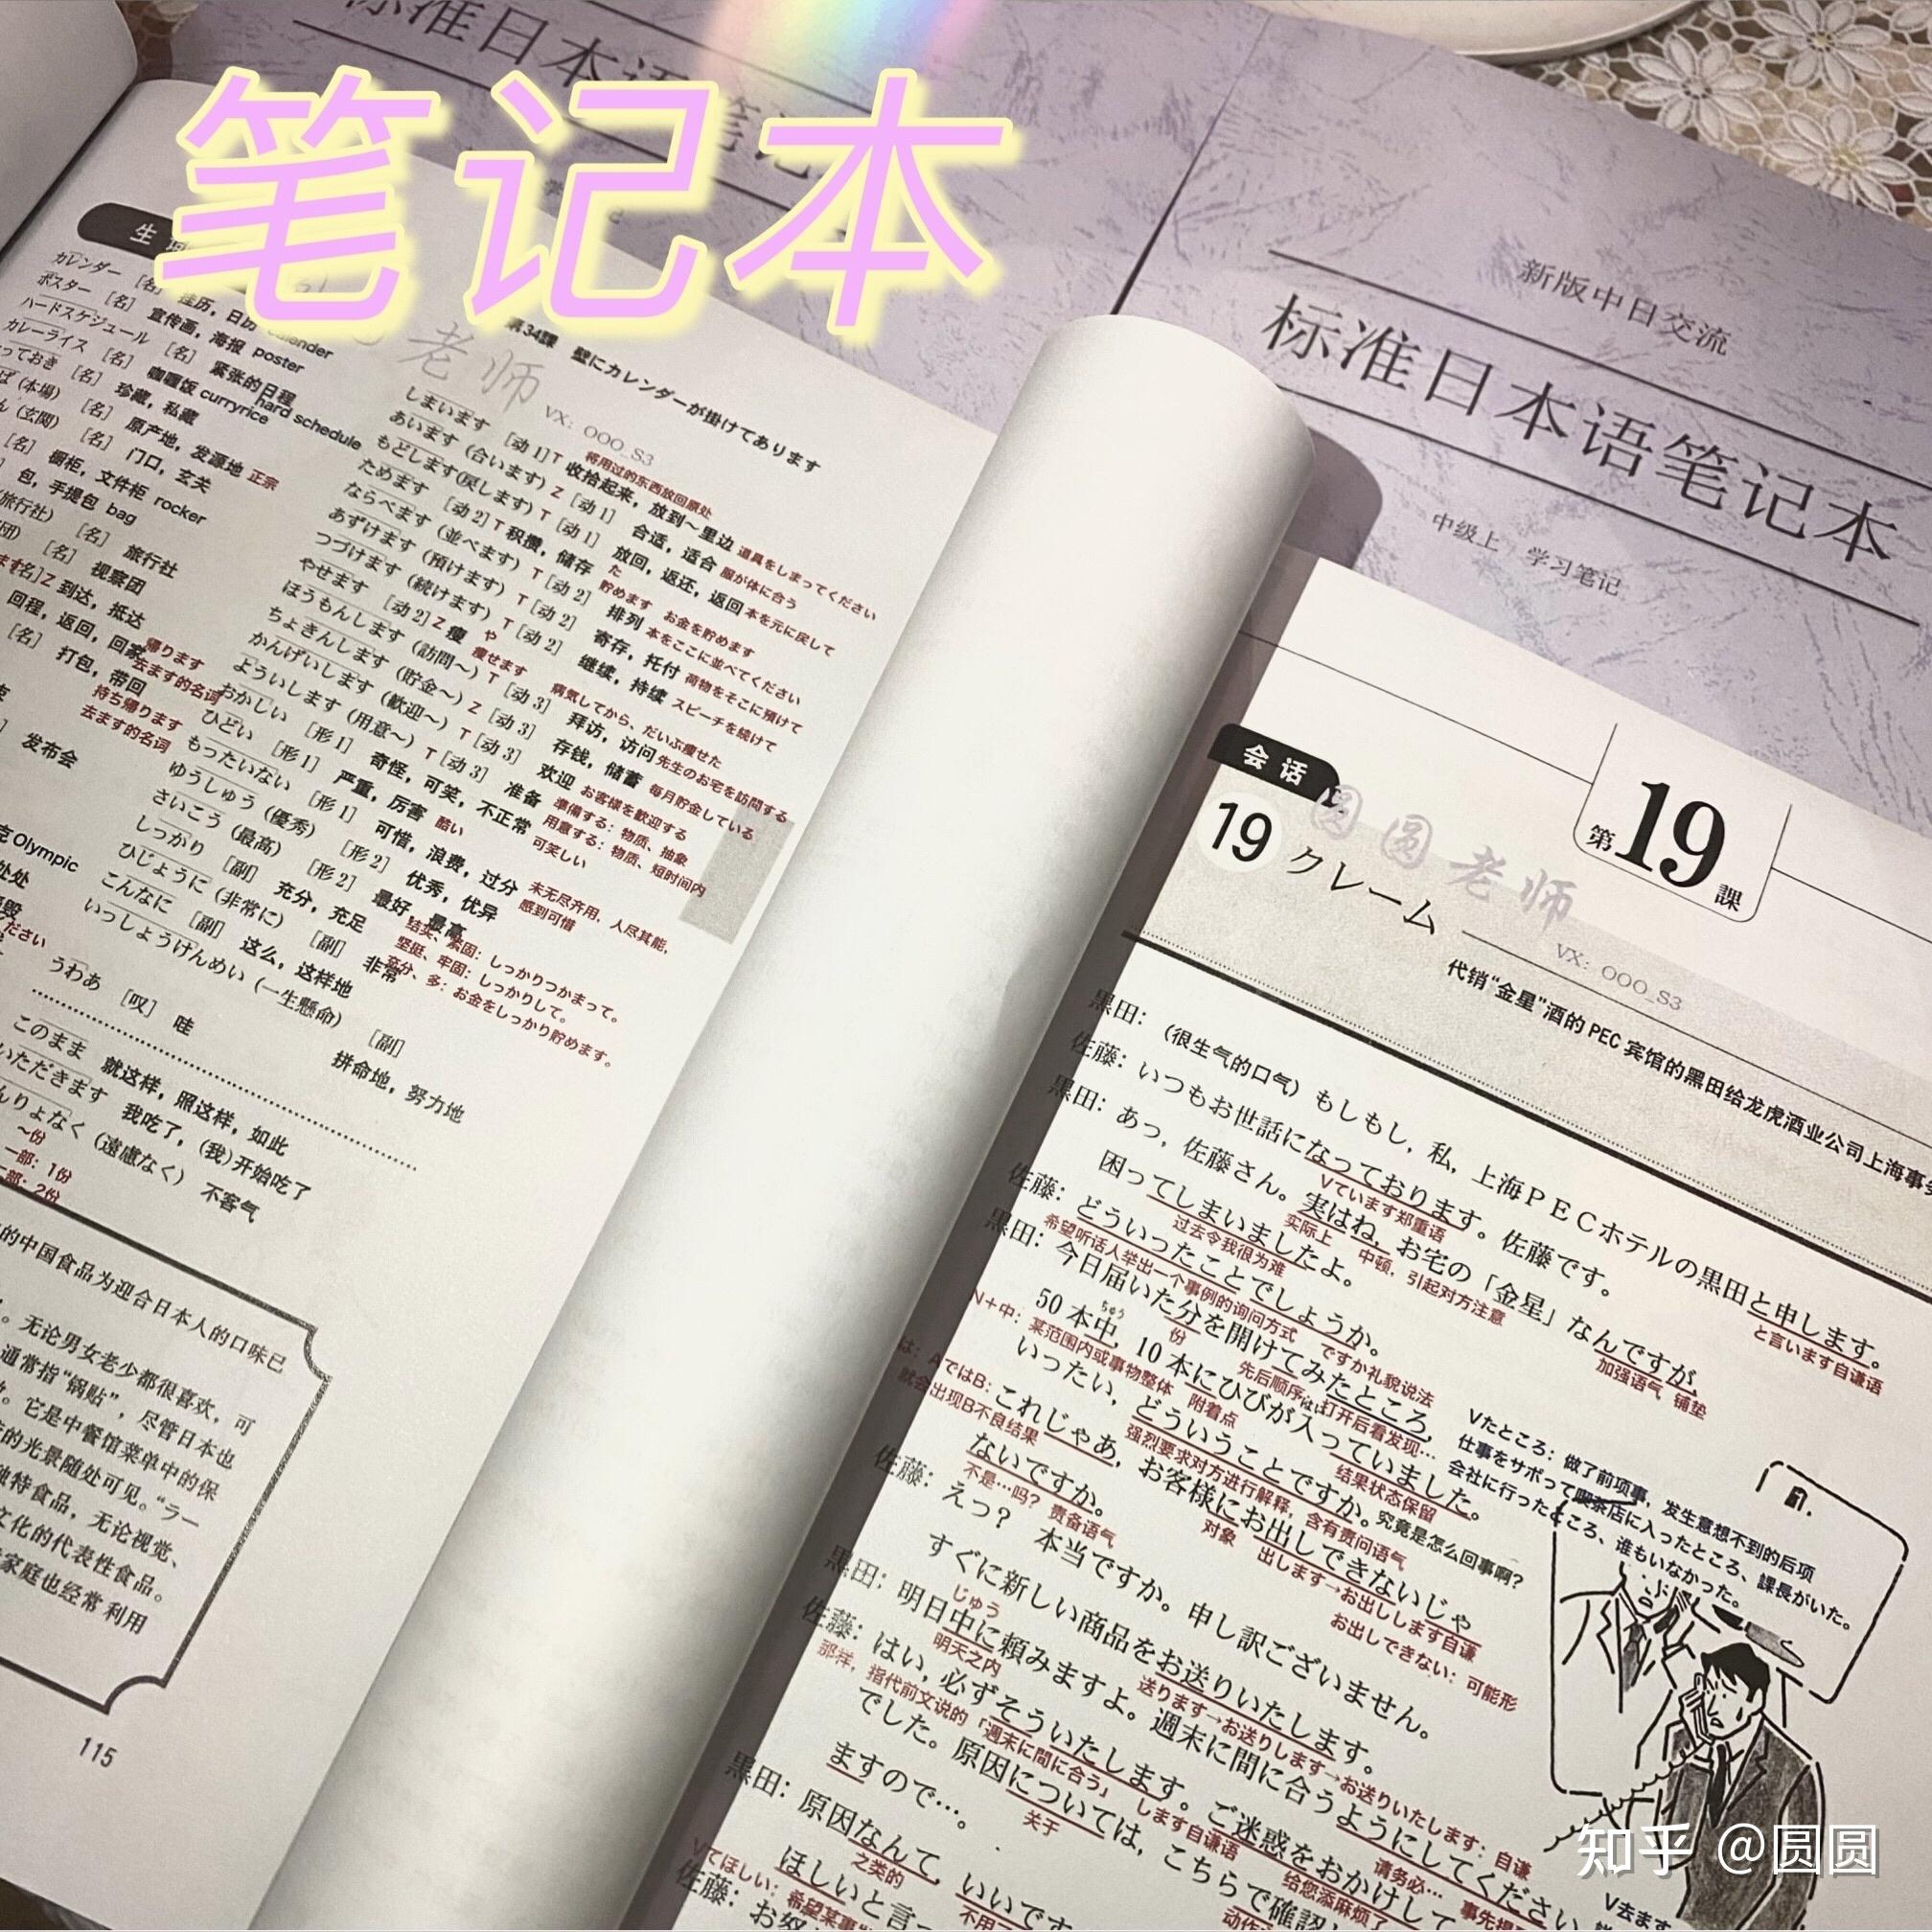 笔记本
标准日本语笔记
新版中日交流
标准日本语笔记本
中级上 学习笔记
第34課 壁にカレンダーが掛けてあります
老师
VX: OOO_S3
カレンダー [名] 挂历，日历
ポスター [名] 宣传画，海报 poster
ハードスケジュール [名] 紧张的日程 hard schedule
カレーライス [名] 咖喱饭 curryrice
っておき [名] 珍藏，私藏
(本場) [名] 原产地，发源地 正宗
(玄関) [名] 门口，玄关
[名] 橱柜，文件柜 rocker
包，手提包 bag
旅行社) [名] 旅行社
団) [名] 视察团
Z 到达，抵达
回程，返回，回家
帰ります
去ます的名词
[名] 打包，带回
持ち帰ります
去ます的名词
发布会
Olympic
しまいます [动1]T 收拾起来，放到～里边 道具をしまってください
将用过的东西放回原处
あいます (合います) Z [动1] 合适，适合 服が体に合う
もどします(戻します) T [动1] 放回，返还，返回 本を元に戻して
ためます [动2]T 积攒，储存 貯めます お金を貯めます
ならべます (並べます) T [动2] 排列 本をここに並べてください
あずけます (預けます) T [动2] 寄存，托付 荷物をそこに預けて
つづけます (続けます) T [动2] 继续，持续 スピーチを続けて
やせます [动2]Z 瘦 痩せます 病気してから、だいぶ痩せた
ほうもんします (訪問～) T [动3] 拜访，访问 先生のお宅を訪問する
ちょきんします (貯金～) Z [动3] 存钱，储蓄 毎月貯金している
かんげいします (歓迎～) T [动3] 欢迎 お客様を歓迎する
よういします (用意～) T [动3] 准备 準備する：物质、抽象
用意する：物质、短时间内
おかしい [形1] 奇怪，可笑，不正常 可笑しい
ひどい [形1] 严重，厉害 酷い
もったいない [形1] 可惜，浪费，过分 未无尽齐用，人尽其能，
感到可惜
ゆうしゅう (優秀) [形2] 优秀，优异
さいこう (最高) [形2] 最好，最高
しっかり [副] 充分，充足
结实、紧固：しっかりつかまって。
坚挺、牢固：しっかりして。
充分、多：お金をしっかり貯めます。
ひじょうに (非常に) [副] 非常
こんなに [副] 这么，这样地
いっしょうけんめい (一生懸命) [副] 拼命地，努力地
うわあ [叹] 哇
このまま 就这样，照这样，如此
いただきます 我吃了，(我)开始吃了
んりょなく (遠慮なく) 不客气
～份
一部：1份
二部：2份
的中国食品为迎合日本人的口味已
。无论男女老少都很喜欢，可
通常指“锅贴”，尽管日本也
。它是中餐馆菜单中的保
的光景随处可见。“ラー
独特食品，无论视觉、
文化的代表性食品。
家庭也经常利用
115
第19課
会话
圆圆老师
VX: OOO_S3
19 クレーム
代销“金星”酒的 PEC 宾馆的黑田给龙虎酒业公司上海事
黒田：（很生气的口气）もしもし，私，上海ＰＥＣホテルの黒田と申します。
と言います自谦语
佐藤：いつもお世話になっております。佐藤です。
Vています郑重语
黒田：あっ，佐藤さん。実はね，お宅の「金星」なんですが，
实际上 中顿，引起对方注意 加强语气 铺垫
困ってしまいましたよ。
过去令我很为难
佐藤：どういったことでしょうか。
希望听话人举出一个事例的询问方式 ですか礼貌说法
黒田：今日届いた分を開けてみたところ，
份 先后顺序 打开后看发现…
50 本中，10 本にひびが入っていました。
ちゅう
N＋中：某范围内或事物整体 附着点 结果状态保留
いったい，どういうことですか。究竟是怎么回事啊？
强烈要求对方进行解释，含有责问语气
AではB：
就会出现B不良结果
これじゃあ，お客様にお出しできないじゃ
对象 出します→お出しします自谦
お出しできない：可能形
ないですか。
不是…吗？责备语气
Vたところ：做了前项事，发生意想不到的后项
仕事をサボって喫茶店に入ったところ、課長がいた。
会社に行ったところ、誰もいなかった。
佐藤：えっ？ 本当ですか。申し訳ございません。
すぐに新しい商品をお送りいたします。
送ります→お送りします→お送りいたします：自谦
黒田：明日中に頼みますよ。週末に間に合うようにしてください
じゅう
明天之内 请务必…
佐藤：はい，必ずそういたします。ご迷惑をおかけして
那样，指代前文说的「週末に間に合う」 します自谦语 给您添麻烦了
でした。原因については，こちらで確認
关于
ますので…。
黒田：原因なんて，いいです
之类的
ほしいと言っ
Vてほしい：希望某事
佐藤：お怒
知乎 @圆圆